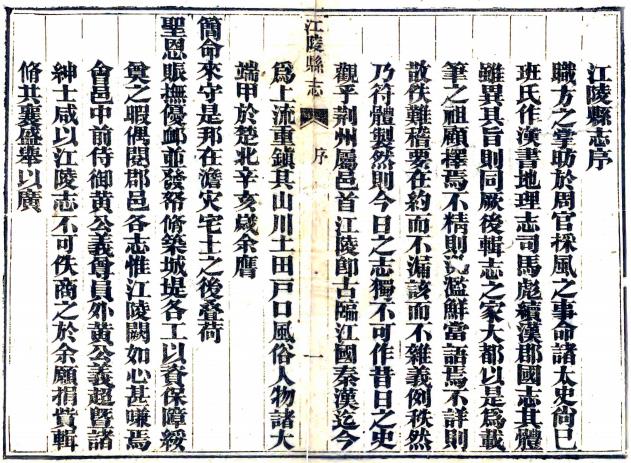 江陵縣志序
職方之掌昉於周官採風之事命諸太史尚已
班氏作漢書地理志司馬彪續漢郡國志其體
雖異其旨則同厥後輯志之家大都以是為載
筆之祖顧擇焉不精則氾濫鮮當語焉不詳則
散佚難稽要在約而不漏該而不雜義例秩然
乃符體製然則今日之志獨不可作昔日之史
觀乎荆州屬邑首江陵卽古臨江國秦漢迄今
江陵縣志
序
一
為上流重鎮其山川土田戶口風俗人物諸大
端甲於楚北辛亥歲余膺
簡命來守是邦在澹災宅土之後叠荷
聖恩賑撫優卹並發帑脩築城堤各工以資保障綏
奠之暇偶閱郡邑各志惟江陵闕如心甚嗛焉
會邑中前侍御黃公義會員外黃公義超暨諸
紳士咸以江陵志不可佚商之於余願捐貲輯
脩共襄盛舉以廣